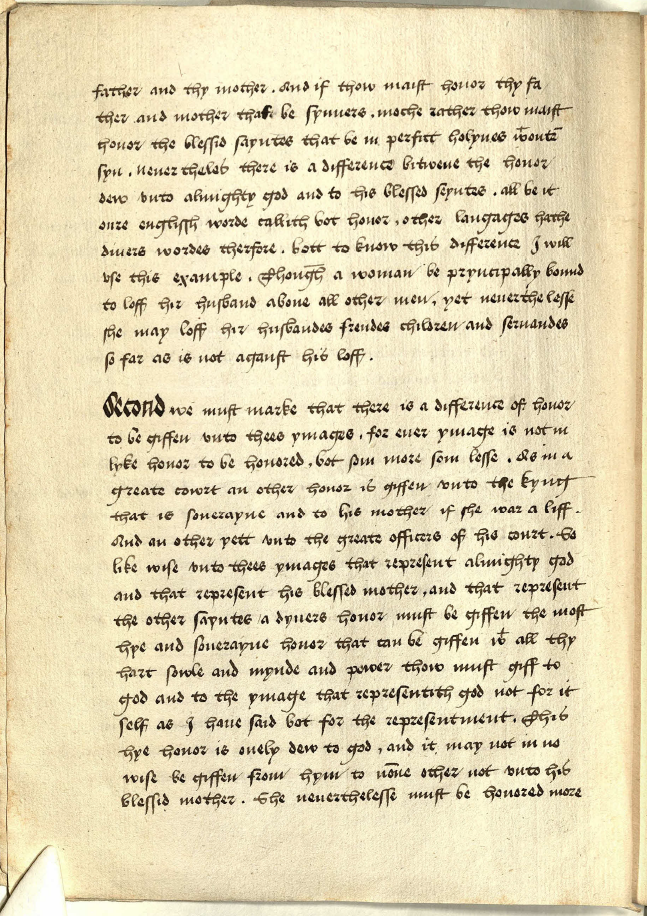 father and thy mother . And if thow maist honor thy fa
ther and mother that be synners . moche rather thow maist
honor the blessid sayntes that be in perfitt holynes wtoute
syn . Neuertheles there is a difference bitwene the honor
dew vnto almighty god and to his blessed seyntes . all be it
oure englissh worde callith bot honor , other langages hathe
diuers wordes therfore . bott to know this difference I will
vse this example . Though a woman be pryncipally bound
to loff hir husband aboue all other men , yet neuerthelesse
she may loff hir husbandes frendes children and seruandes
so far as is not aganst his loff .
Second we must marke that there is a difference of honor
to be giffen vnto thees ymages . for euer ymage is not in
lyke honor to be honored , bot som more som lesse . As in a
greate cowrt an other honor is giffen vnto the kyng
that is souerayne and to his mother if she war a liff .
And an other yett vnto the greate officers of his court . So
like wise vnto thees ymages that represent almighty god
and that represent his blessed mother , and that represent
the other sayntes a dyuers honor must be giffen the most
hye and souerayne honor that can be giffen wt all thy
hart sowle and mynde and power thow must giff to
god and to the ymage that representith god not for it
self as I haue said bot for the representment . This
hye honor is onely dew to god , and it may not in no
wise be giffen from hym to none other not vnto his
blessid mother . She neuerthelesse must be honored more